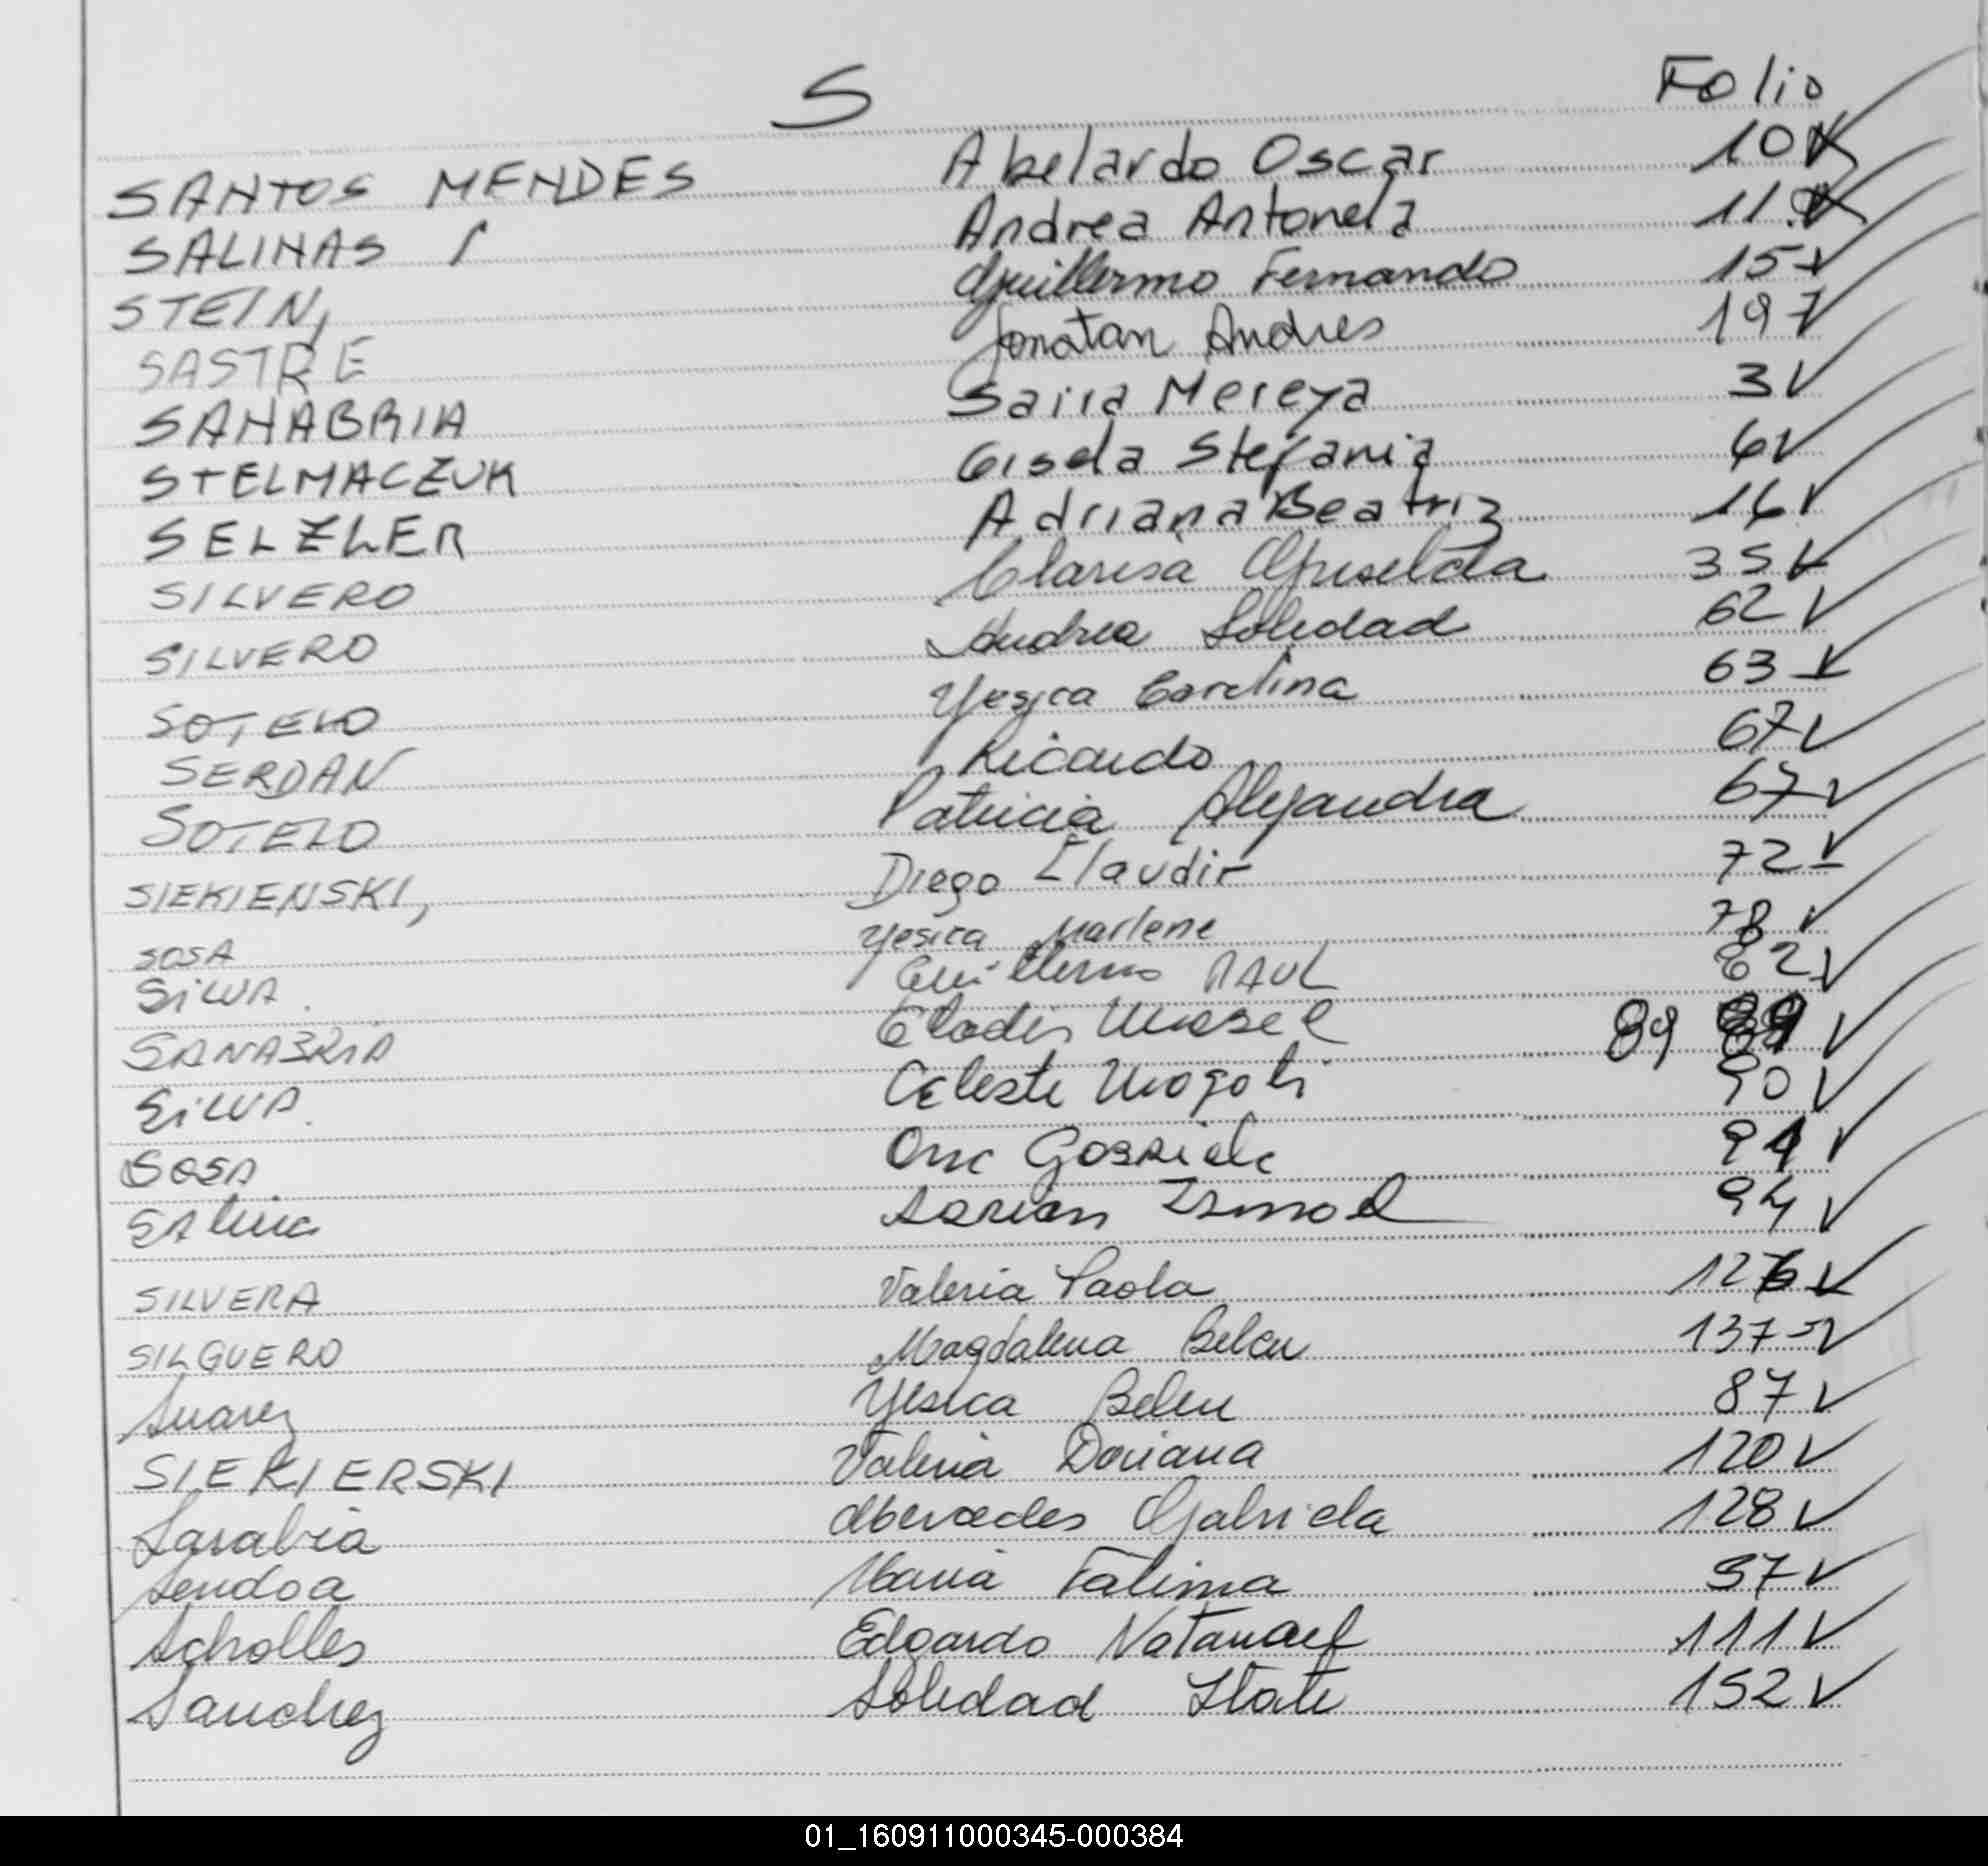 S Folio
SANTOS MENDES Abelardo Oscar 10
SALINAS Andrea Antonela 11
STEIN, Guillermo Fernando 15
SASTRE Jonatan Andres 19
SANABRIA Saira Mereya 3
STELMACZUK Gisela Stefania 6
SELZLER Adriana Beatriz 16
SILVERO Clarisa Griselda 35
SILVERO Andrea Soledad 62
SOTELO Yesica Carolina 63
SERDAN Ricardo 67
SOTELO Patricia Alejandra 67
SIEKIENSKI, Diego Claudir 72
SOSA Yesica Marlene 78
SILVA Guillermo RAUL 82
SANABRIA 89
SILVA Celeste 90
SOSA 91
94
SILVERA Valeria Paola 126
SILGUERO Magdalena Belen 137
Suarez Yesica Belen 87
SIEKIERSKI Valeria Doriana 120
Sarabia Mercedes Gabriela 128
Sendoa Maria Fatima 97
Scholles Edgardo Natanael 111
Sanchez Soledad Itati 152
01_160911000345-000384